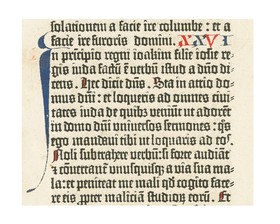 solationem a facie ire columbe : et a
facie ire furoris domini. XXVI
In principio regni ioachim filie iosie re-
gis iuda factū ē verbū istud a dño di-
cens. Hec dicit dñs. Sta in atrio do-
mus dñi : et loqueris ad omnes civi-
tates iuda de quibz veniūt ut adorēt
in domo dñi universos sermones : qs
ego mandavi tibi ut loquaris ad eos.
Noli subtrahere verbū : si forte audiāt
z convertant unusquisqz a via sua ma-
la : et peniteat me mali qd cogito face-
re eis ppter maliciā studioɽ eorū. Et